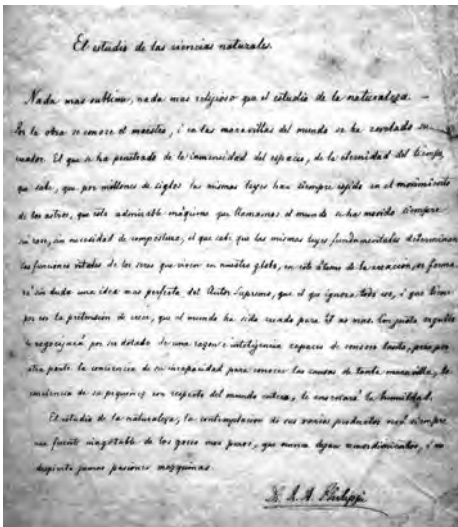 El estudio de las ciencias naturales.
Nada mas sublime, nada mas relijioso que el estudio de la naturaleza. —
Por la obra se conoce al maestro, i en las maravillas del mundo se ha revelado su
creador. El que se ha penetrado de la inmensidad del espacio, de la eternidad del tiempo,
que sabe, que por millones de siglos las mismas leyes han siempre rejido en el movimiento
de los astros, que esta admirable máquina que llamamos el mundo se ha movido siempre
sin cesar, sin necesidad de compostura, el que sabe que las mismas leyes fundamentales determinan
las funciones vitales de los seres que viven en nuestro globo, en este átomo de la creación, se forma
rá sin duda una idea mas perfecta del Autor Supremo, que el que ignora todo eso, i que tiene
por eso la pretension de creer, que el mundo ha sido creado para él no mas. Con justo orgullo
se regocijará por ser dotado de una razon e intelijencia capaces de conocer tanto, pero por
otra parte la conciencia de su incapacidad para conocer las causas de tanta maravilla, la
conciencia de su pequeñez con respecto del mundo entero, le enseñará la humildad.
El estudio de la naturaleza, la contemplacion de sus varios productos será siempre
una fuente inagotable de los goces mas puros, que nunca dejan remordimientos, i no
despierta jamas pasiones mezquinas.
Dr. R. A. Philippi